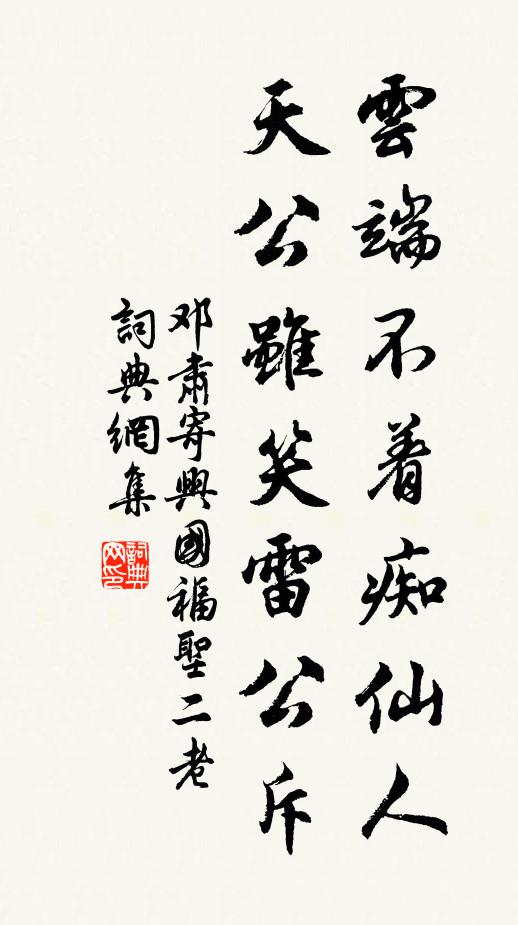 雲端不着痴仙人
天公雖笑雷公斥
邓肅寄興國福聖二老
詞典網集
詞典网印